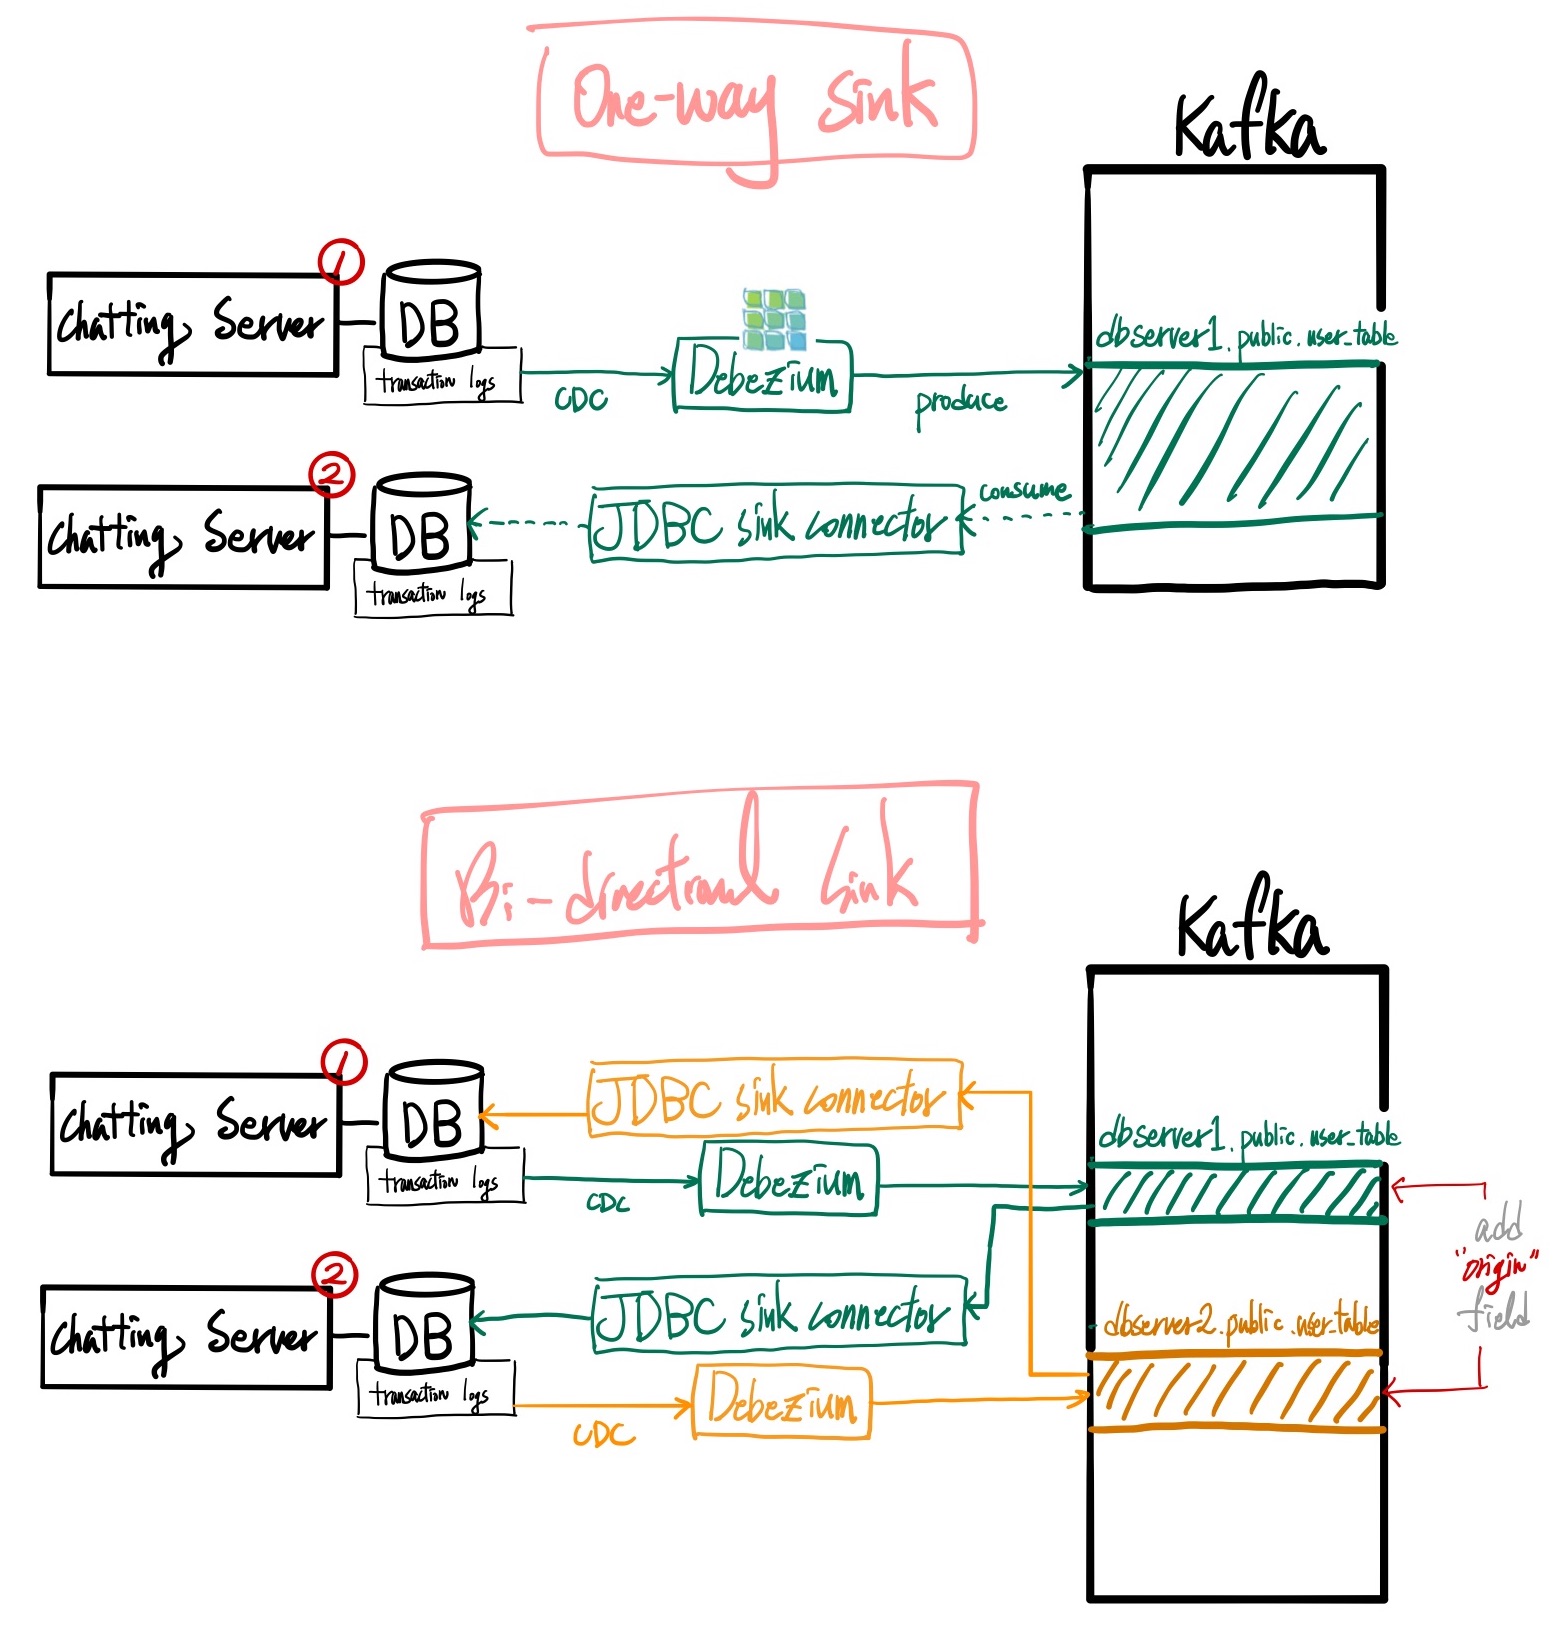 One-way sink
Kafka
1
Chatting Server
DB
transaction logs
CDC
Debezium
produce
dbserver1.public.user_table
2
Chatting Server
DB
transaction logs
JDBC sink connector
consume
Bi-directional Sink
Kafka
1
Chatting Server
DB
transaction logs
JDBC sink connector
CDC
Debezium
dbserver1.public.user_table
add
"origin"
field
2
Chatting Server
DB
transaction logs
JDBC sink connector
CDC
Debezium
dbserver2.public.user_table